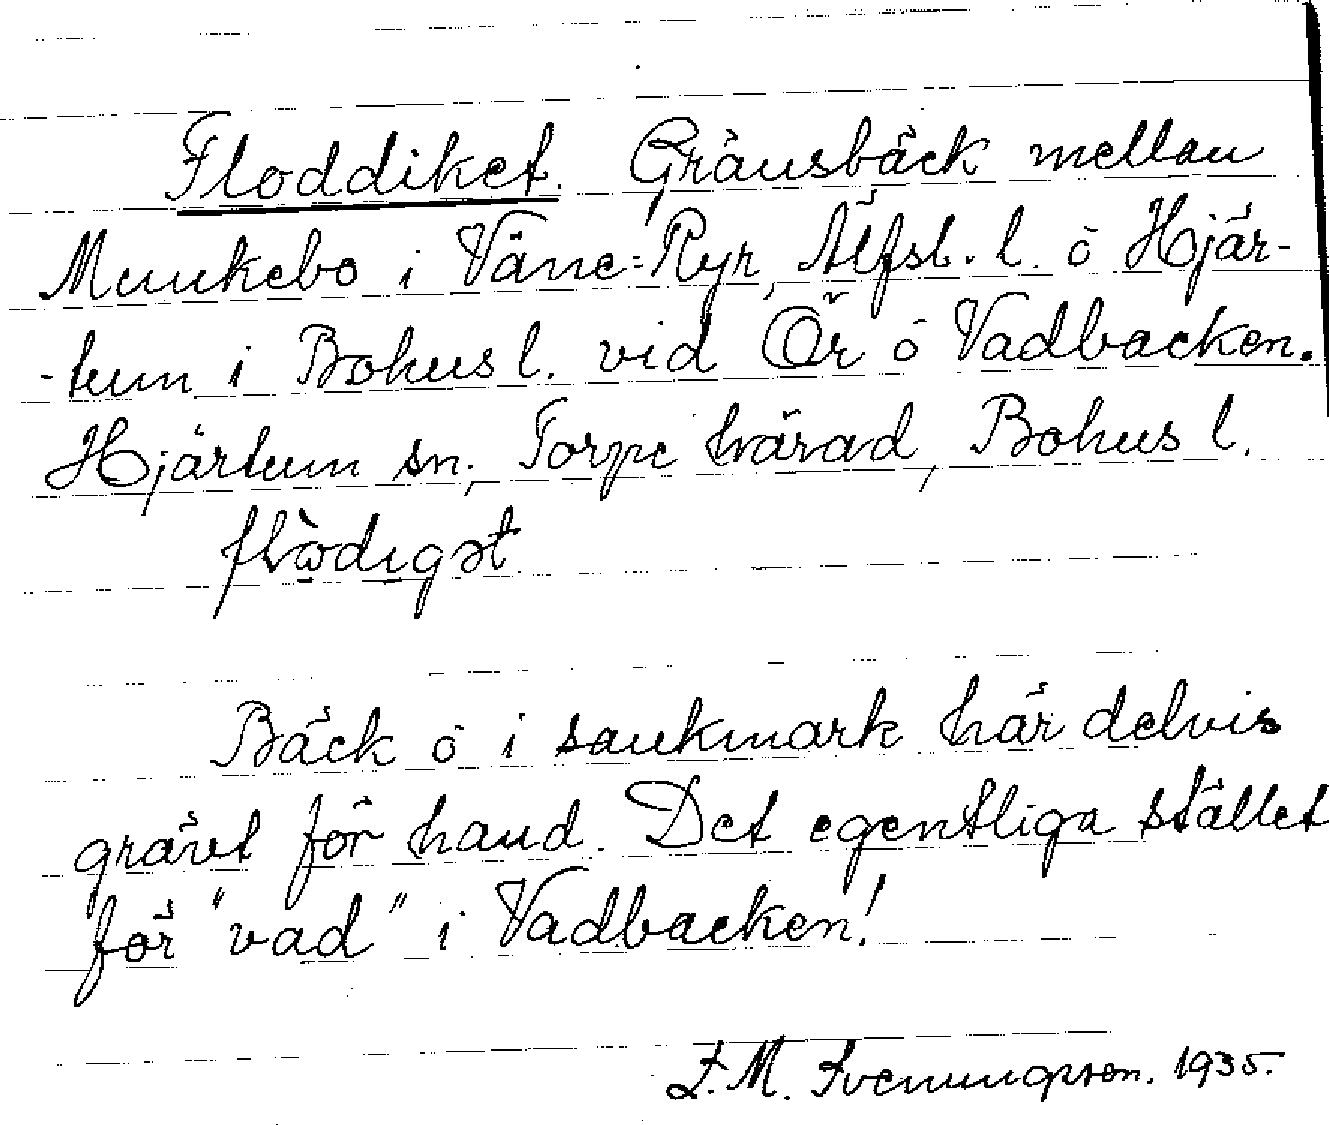 Floddiket. Gränsbäck mellan
Munkebo i Väne=Ryr, Älfsb. l. o Hjär-
-tum i Bohus l. vid Ör o Vadbacken.
Hjärtum sn; Torpe härad, Bohus l.
flòdigət
Bäck o i sankmark här delvis
grävt för hand. Det egentliga stället
för "vad" i Vadbacken!
F.M. Svenungsson. 1935.